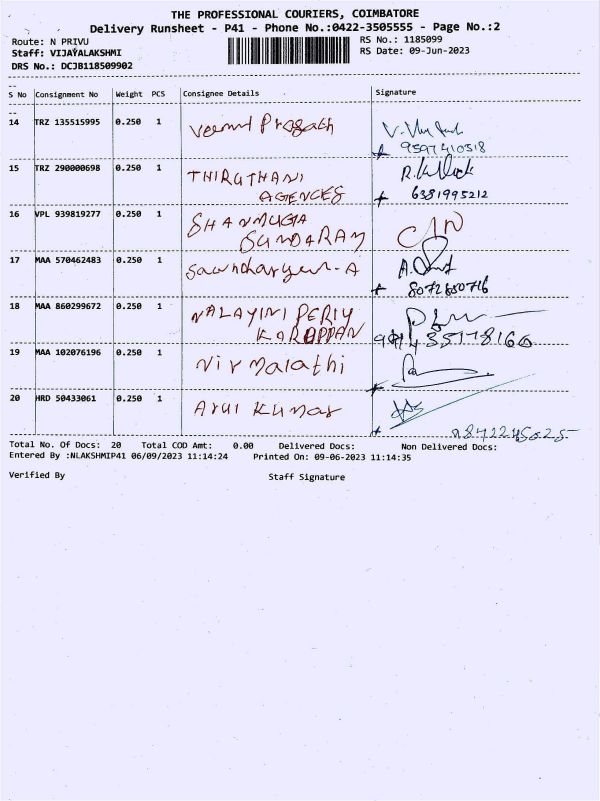 THE PROFESSIONAL COURIERS, COIMBATORE
Delivery Runsheet - P41 - Phone No.:0422-3505555 - Page No.:2
Route: N PRIVU
RS No.: 1185099
Staff: VIJAYALAKSHMI
RS Date: 09-Jun-2023
DRS No.: DCJB118509902
S No Consignment No Weight PCS Consignee Details Signature
14 TRZ 135515995 0.250 1
9597410518
15 TRZ 290000698 0.250 1 THIRUTHANI
AGENCES
6381995212
16 VPL 939819277 0.250 1 SHANMUGA
SUNDARAM
17 MAA 570462483 0.250 1
18 MAA 860299672 0.250 1 NALAYINI PERIY
KARUPPAN
19 MAA 102076196 0.250 1 Nirmalathi
20 HRD 50433061 0.250 1 Arul Kumar
Total No. Of Docs: 20 Total COD Amt: 0.00 Delivered Docs: Non Delivered Docs:
Entered By :NLAKSHMIP41 06/09/2023 11:14:24 Printed On: 09-06-2023 11:14:35
Verified By Staff Signature